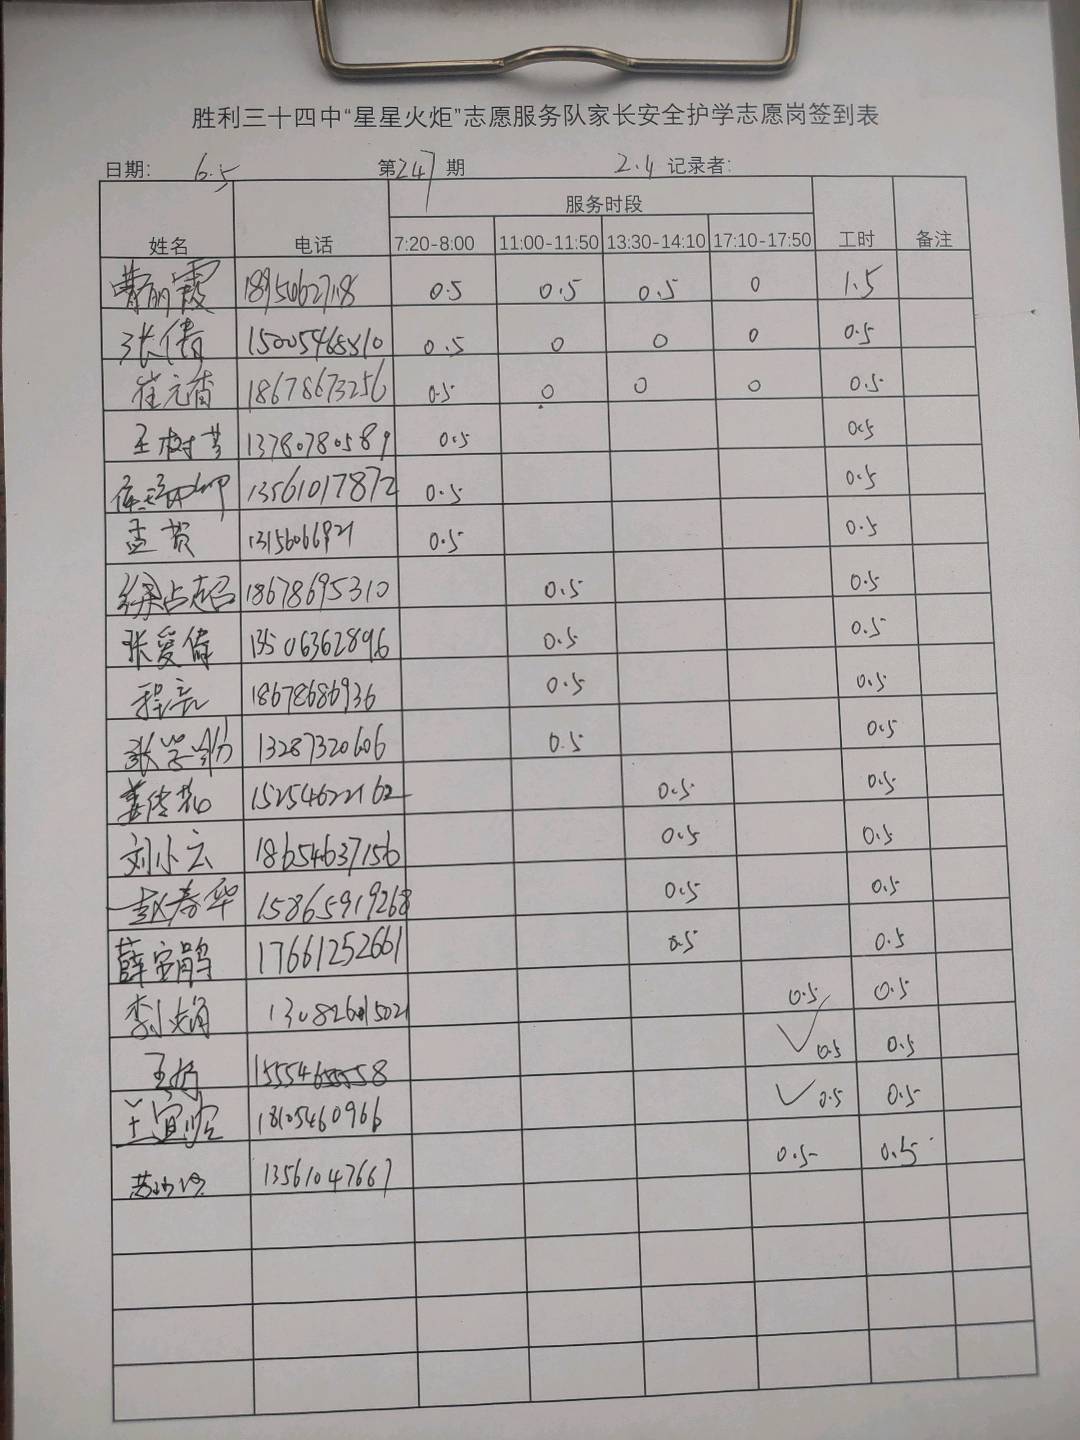 胜利三十四中“星星火炬”志愿服务队家长安全护学志愿岗签到表
日期: 6.5 第247期 2.4 记录者:
服务时段
姓名 电话 7:20-8:00 11:00-11:50 13:30-14:10 17:10-17:50 工时 备注
曹丽霞 0.5 0.5 0.5 0 1.5
张倩 0.5 0 0 0 0.5
崔元香 18678673256 0.5 0 0 0 0.5
王树芳 13780780589 0.5 0.5
13561017872 0.5 0.5
孟贺 13156066921 0.5 0.5
徐占超 18678695310 0.5 0.5
张爱伟 13506362896 0.5 0.5
程亮 18678686936 0.5 0.5
张学勤 13287320606 0.5 0.5
姜传花 15254622162 0.5 0.5
刘小云 18654637156 0.5 0.5
赵春华 15865919268 0.5 0.5
薛宝鹃 17661252661 0.5 0.5
李娟 0.5 0.5
王 0.5 0.5
18105460966 0.5 0.5
13561047667 0.5 0.5